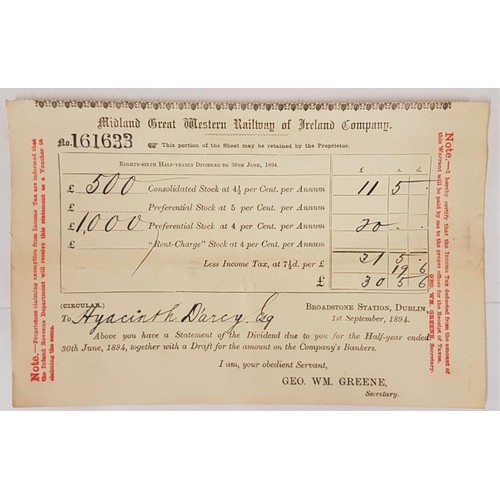 Midland Great Western Railway of Ireland Company.
No. 161633 This portion of the Sheet may be retained by the Proprietor.
Eighty-sixth Half-yearly Dividend to 30th June, 1894. £ s. d.
£ 500 Consolidated Stock at 4½ per Cent. per Annum 11 5 .
£ Preferential Stock at 5 per Cent. per Annum
£ 1,000 Preferential Stock at 4 per Cent. per Annum 20 . .
£ "Rent-Charge" Stock at 4 per Cent. per Annum
31 5 .
Less Income Tax, at 7½d. per £ 19 6
£ 30 5 6
(CIRCULAR.) Broadstone Station, Dublin,
To Hyacinth Darcy Esq 1st September, 1894.
Above you have a Statement of the Dividend due to you for the Half-year ended
30th June, 1894, together with a Draft for the amount on the Company's Bankers.
I am, your obedient Servant,
GEO. WM. GREENE,
Secretary.
Note.—Proprietors claiming exemption from Income Tax are informed that
the Inland Revenue Department will receive this statement as a Voucher in
claiming the same.
Note.—I hereby certify that the Income Tax deducted from the amount of
this Warrant will be paid by me to the proper officer for the Receipt of Taxes.
GEO. WM. GREENE, Secretary.